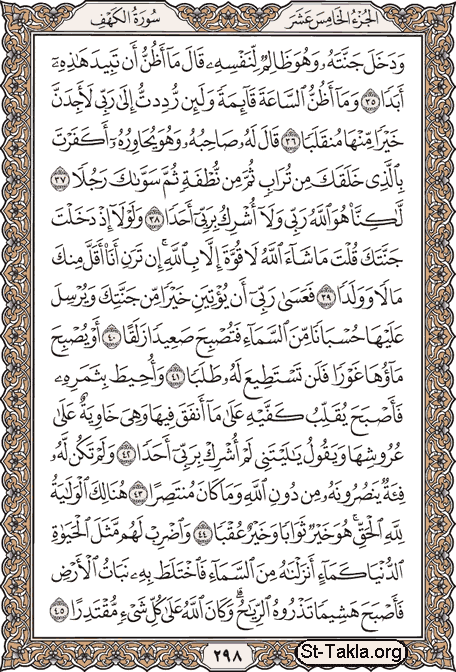 الجزء الخامس عشر
سورة الكهف
وَدَخَلَ جَنَّتَهُ وَهُوَ ظَالِمٌ لِّنَفْسِهِ قَالَ مَا أَظُنُّ أَن تَبِيدَ هَٰذِهِ
أَبَدًا ٣٥ وَمَا أَظُنُّ السَّاعَةَ قَائِمَةً وَلَئِن رُّدِدتُّ إِلَىٰ رَبِّي لَأَجِدَنَّ
خَيْرًا مِّنْهَا مُنقَلَبًا ٣٦ قَالَ لَهُ صَاحِبُهُ وَهُوَ يُحَاوِرُهُ أَكَفَرْتَ
بِالَّذِي خَلَقَكَ مِن تُرَابٍ ثُمَّ مِن نُّطْفَةٍ ثُمَّ سَوَّىٰكَ رَجُلًا ٣٧
لَّٰكِنَّا هُوَ اللَّهُ رَبِّي وَلَا أُشْرِكُ بِرَبِّي أَحَدًا ٣٨ وَلَوْلَا إِذْ دَخَلْتَ
جَنَّتَكَ قُلْتَ مَا شَاءَ اللَّهُ لَا قُوَّةَ إِلَّا بِاللَّهِ ۚ إِن تَرَنِ أَنَا أَقَلَّ مِنكَ
مَالًا وَوَلَدًا ٣٩ فَعَسَىٰ رَبِّي أَن يُؤْتِيَنِ خَيْرًا مِّن جَنَّتِكَ وَيُرْسِلَ
عَلَيْهَا حُسْبَانًا مِّنَ السَّمَاءِ فَتُصْبِحَ صَعِيدًا زَلَقًا ٤٠ أَوْ يُصْبِحَ
مَاؤُهَا غَوْرًا فَلَن تَسْتَطِيعَ لَهُ طَلَبًا ٤١ وَأُحِيطَ بِثَمَرِهِ
فَأَصْبَحَ يُقَلِّبُ كَفَّيْهِ عَلَىٰ مَا أَنفَقَ فِيهَا وَهِيَ خَاوِيَةٌ عَلَىٰ
عُرُوشِهَا وَيَقُولُ يَٰلَيْتَنِي لَمْ أُشْرِكْ بِرَبِّي أَحَدًا ٤٢ وَلَمْ تَكُن لَّهُ
فِئَةٌ يَنصُرُونَهُ مِن دُونِ اللَّهِ وَمَا كَانَ مُنتَصِرًا ٤٣ هُنَالِكَ الْوَلَٰيَةُ
لِلَّهِ الْحَقِّ ۚ هُوَ خَيْرٌ ثَوَابًا وَخَيْرٌ عُقْبًا ٤٤ وَاضْرِبْ لَهُم مَّثَلَ الْحَيَوٰةِ
الدُّنْيَا كَمَاءٍ أَنزَلْنَٰهُ مِنَ السَّمَاءِ فَاخْتَلَطَ بِهِ نَبَاتُ الْأَرْضِ
فَأَصْبَحَ هَشِيمًا تَذْرُوهُ الرِّيَٰحُ ۗ وَكَانَ اللَّهُ عَلَىٰ كُلِّ شَيْءٍ مُّقْتَدِرًا ٤٥
٢٩٨
St-Takla.org